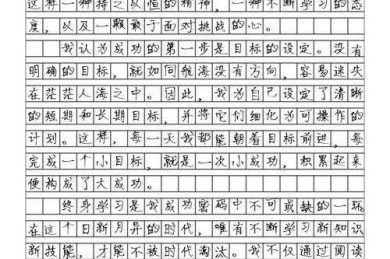 这样一种持之以恒的精神，一种不断学习的态
度，以及一颗敢于面对挑战的心。
我认为成功的第一步是目标的设定。没有
明确的目标，就如同航海没有方向，容易迷失
在茫茫人海之中。因此，我为自己设定了清晰
的短期和长期目标，并将它们细化为可操作的
计划。这样，每一天我都能朝着目标前进，每
完成一个小目标，就是一次小成功，积累起来
便构成了大成功。
终身学习是我成功密码中不可或缺的一环
在这个日新月异的时代，唯有不断学习新知识
新技能，才能不被时代淘汰。我不仅通过阅读